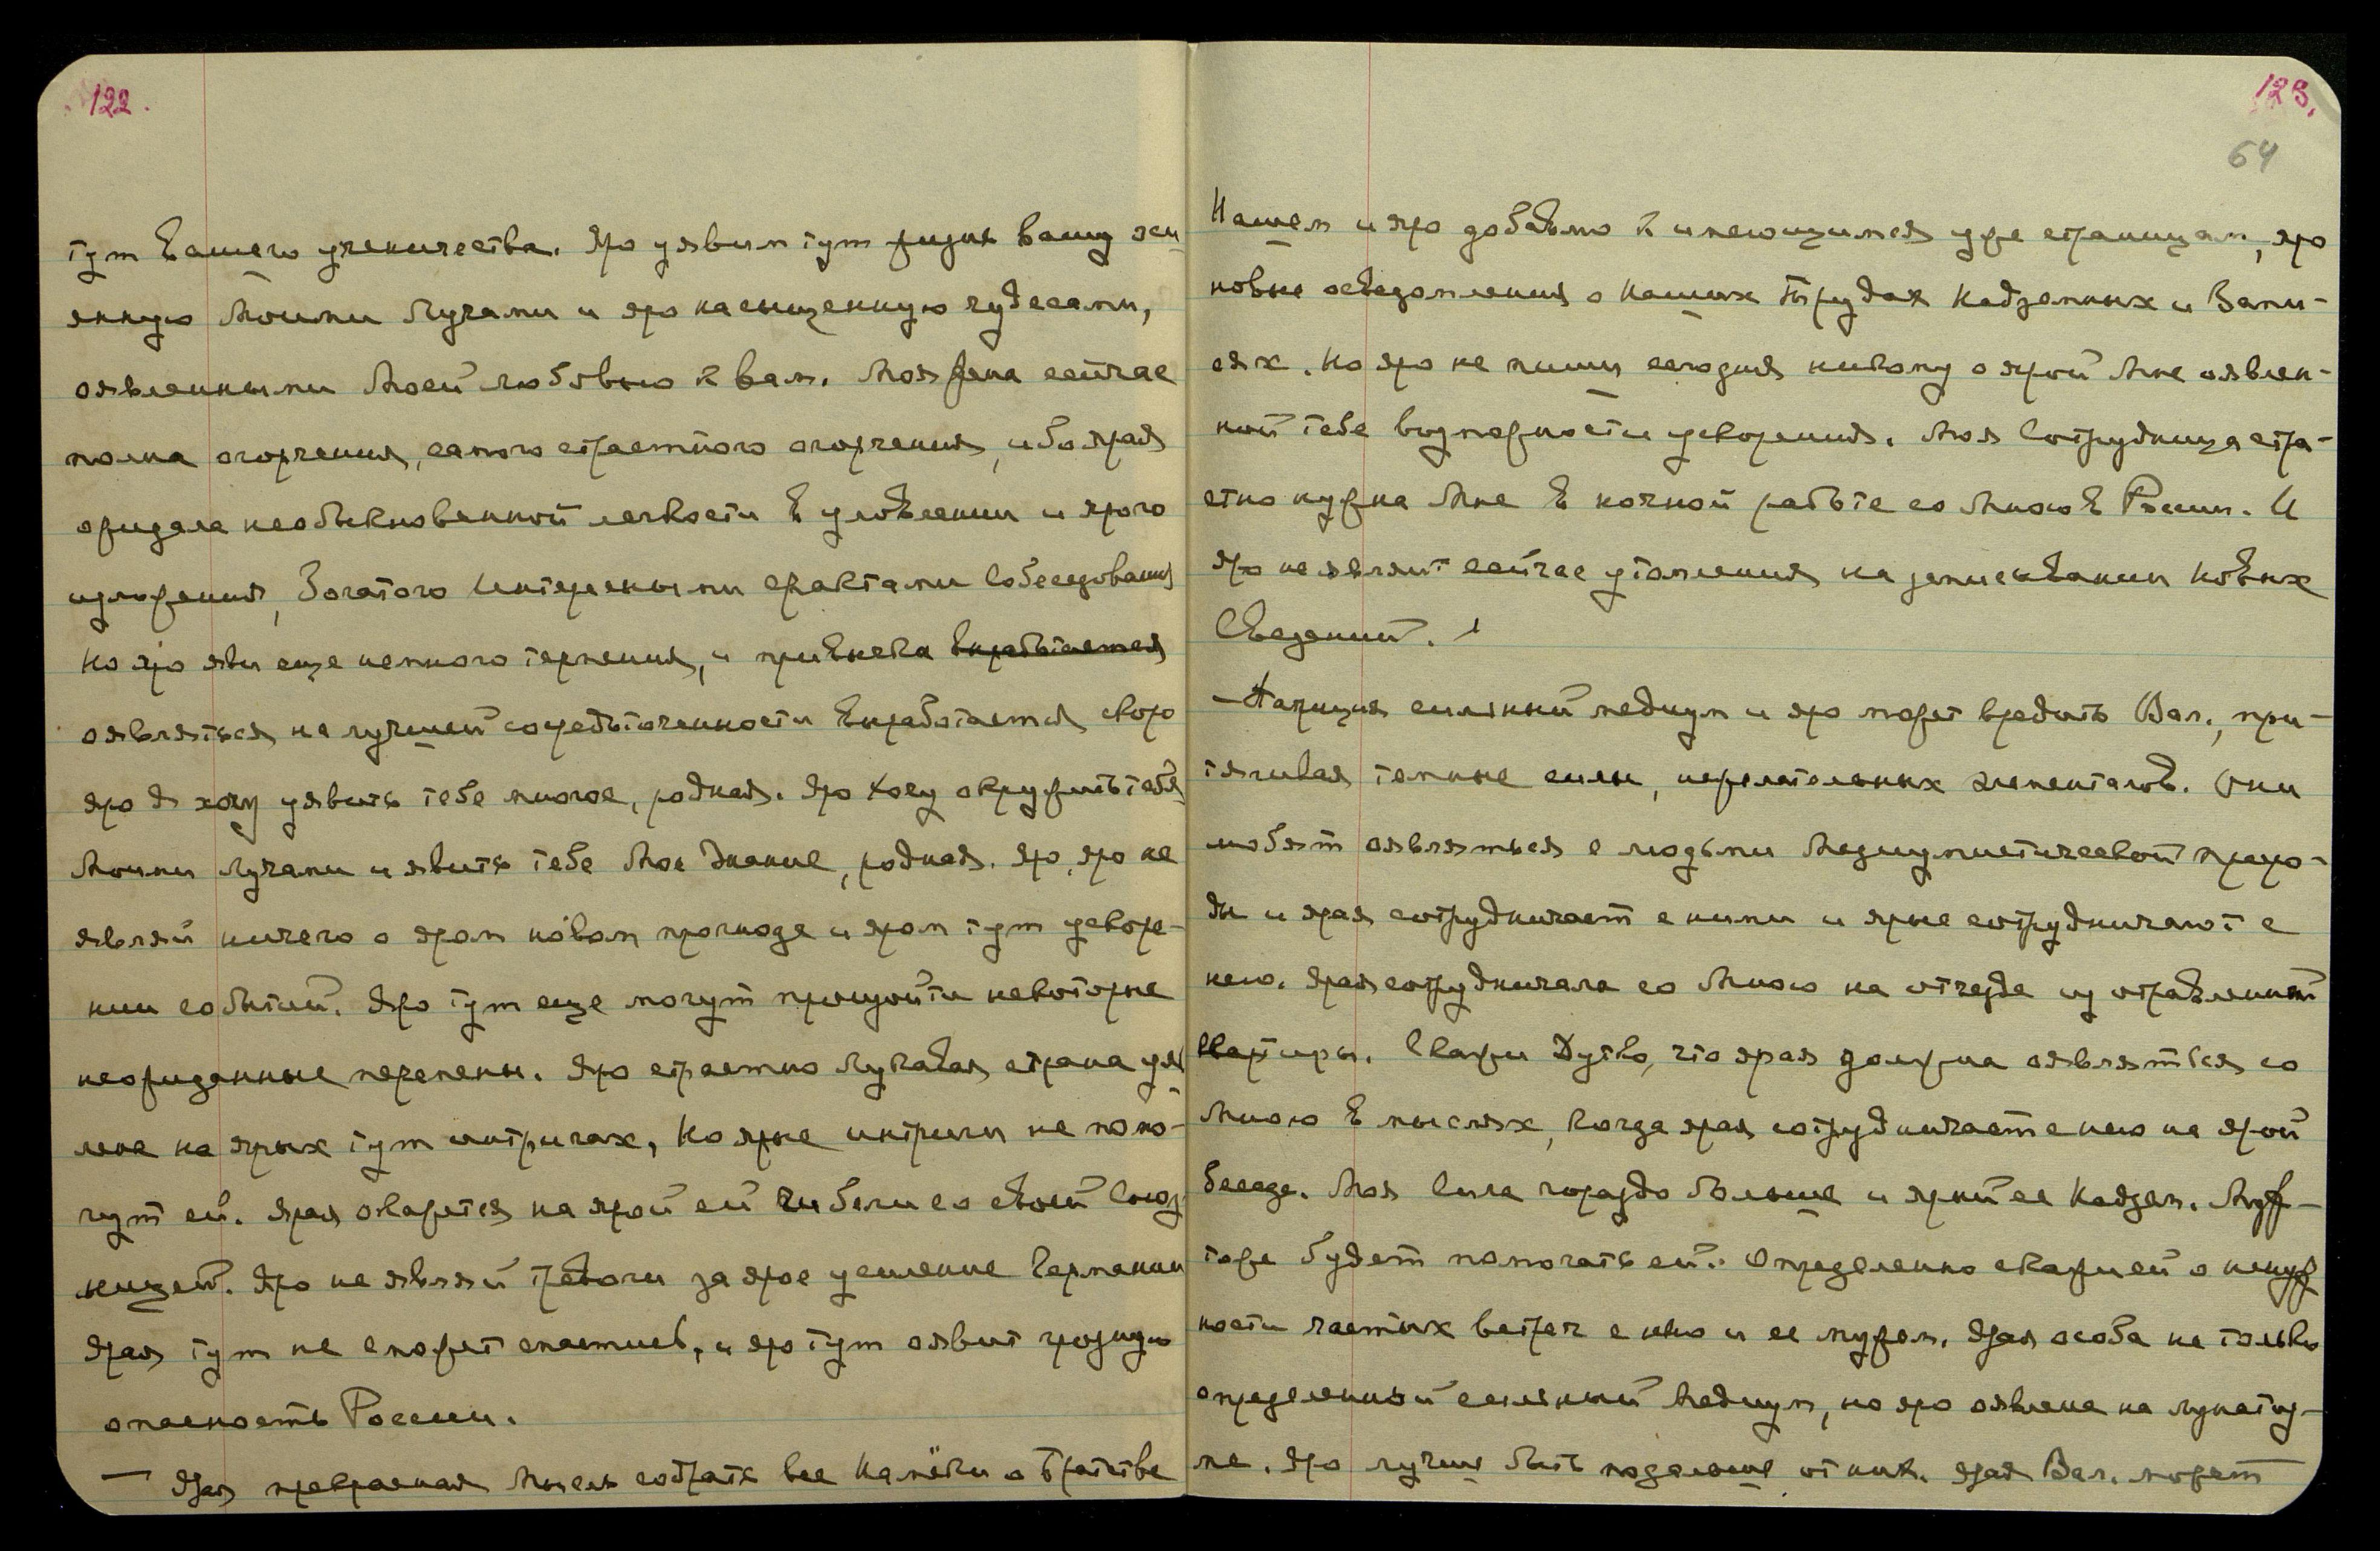 122.
тут Вашего ученичества. Яро уявим тут жизнь вашу оси
янную Моими Лучами и яро насыщенную чудесами,
оявленными Моей любовью к вам. Моя Жена сейчас
полна огорчения, самого страстного огорчения, ибо ярая
ожидала необыкновенной легкости в уловлении и ярого
изложения, богатого интересными фактами Собеседования
Но яро яви еще немного терпения, и привычка вырабатается
оявляться на лучшей сосредоточенности выработается скоро
яро Я хочу уявить тебе многое, родная. Яро хочу окружить тебя
Моими Лучами и явить тебе Мое Знание, родная. Яро, яро не
являй ничего о яром новом прогнозе и яром тут ускоре-
нии событий. Яро тут еще могут произойти некоторые
неожиданные перемены. Яро страстно Лукавая страна уяв
лена на ярых тут интригах, Но ярые интриги не помо-
гут ей. Ярая окажется на ярой ей гибели со своей Союз
ницей. Яро не являй тревоги за ярое усиление Германии
Ярая тут не сможет спастись, и яро тут оявит грозную
опасность России.
— Ярая прекрасная Мысль собрать все Намёки о Братстве
123.
64
Нашем и яро добавлю к имеющимся уже страницам, яро
новые осведомления о Наших Трудах Надземных и Запи-
сях. Но яро не пиши сегодня никому о ярой Мне оявлен-
ной тебе возможности ускорения. Моя Сотрудница стра-
стно нужна Мне в ночной работе со Мною в России. И
яро не являит сейчас утомления на записывании Новых
Сведений.
— Патриция сильный медиум и яро может вредить Вал., при-
тягивая темные силы, нежелательных элементалов. Они
любят оявляться с людьми Медиумистической приро-
ды и ярая сотрудничает с ними и ярые сотрудничают с
нею. Ярая сотрудничала со Мною на отъезде из отравленной
квартиры. Скажи Дутко, что ярая должна оявляться со
Мною в мыслях, когда ярая сотрудничает с нею на ярой
беседе. Моя Сила гораздо больше и ярый ее Надзем. Му-
тоже будет помогать ей. Определенно скажи ей о ненуж
ности частых встреч с нею и ее мужем. Ярая особа не только
определенный сильный Медиум, но яро оявлена на лунатиз-
ме. Яро лучше быть подальше от них. Ярая Вал. может